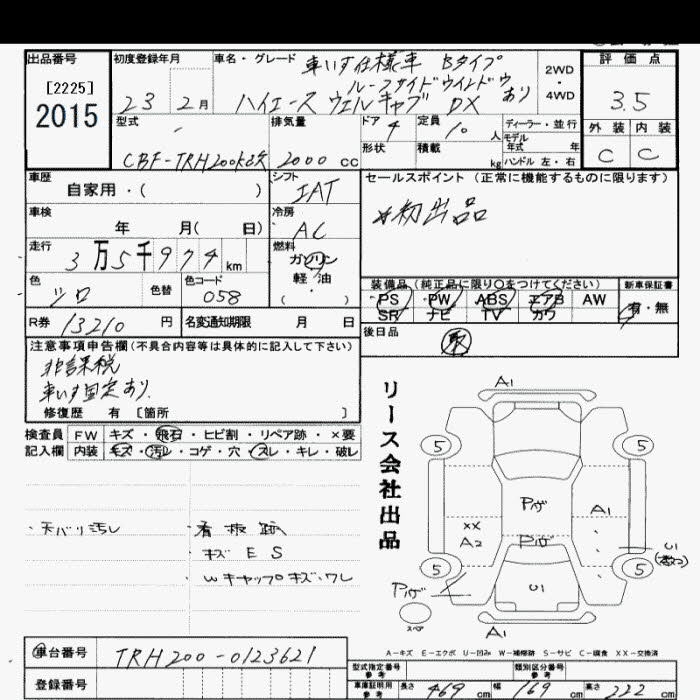 出品番号 初度登録年月 車名・グレード 車いす仕様車 Bタイプ 2WD・4WD 評価点
[2225] ルーフサイドウインドウあり
2015 23 2月 ハイエース ウェルキャブ DX 3.5
型式 排気量 ドア 4 定員 10人 ディーラー・並行 外装 内装
モデル年式 年
CBF-TRH200K改 2000cc 形状 積載 kg ハンドル 左・右 C C
車歴 シフト セールスポイント(正常に機能するものに限ります)
自家用・( ) IAT
車検 冷房 *初出品
年 月( 日) AC
走行 燃料
3万5千974km ガソリン
色 色替 色コード 軽油 装備品(純正品に限り○をつけてください) 新車保証書
シロ 058 ( ・ ) PS PW ABS エアB AW 有・無
R券 13210円 名変通知期限 月 日 SR ナビ TV カワ
後日品 取
注意事項申告欄(不具合内容等は具体的に記入して下さい)
非課税
車いす固定あり
修復歴 有 [箇所 ]
検査員 FW キズ・飛石・ヒビ割・リペア跡・×要
記入欄 内装 キズ・汚レ・コゲ・穴・スレ・キレ・破レ
リース会社出品
A1
5 5
Pハゲ A1
・天バリ汚レ ・看板跡 XX A2 Pハゲ
・キズ E S U1
・Wキャップキズ・ワレ 5 5
Pハゲ U1
スペア
A1
A-キズ E-エクボ U-凹み W-補修跡 S-サビ C-腐食 XX-交換済
車台番号 TRH200-0123621
型式指定番号 参考 類別区分番号 参考
登録番号 車庫証明用 参考 長さ 469cm 幅 169cm 高さ 222cm